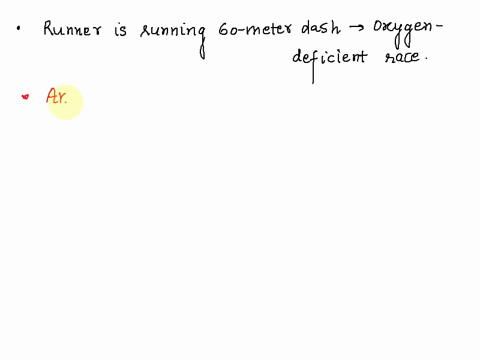 • Runner is running 60-meter dash → Oxygen-
deficient race.
• Ar.